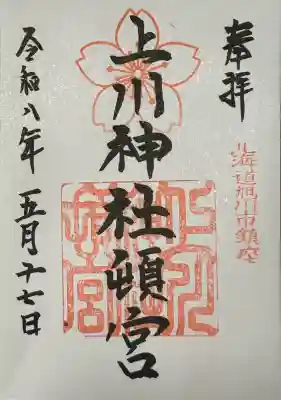 奉拝
北海道旭川市鎮座
上川神社頓宮
令和八年 五月十七日